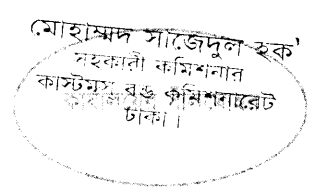 মোহাম্মদ সাজেদুল হক
সহকারী কমিশনার
কাস্টমস বন্ড কমিশনারেট
ঢাকা।